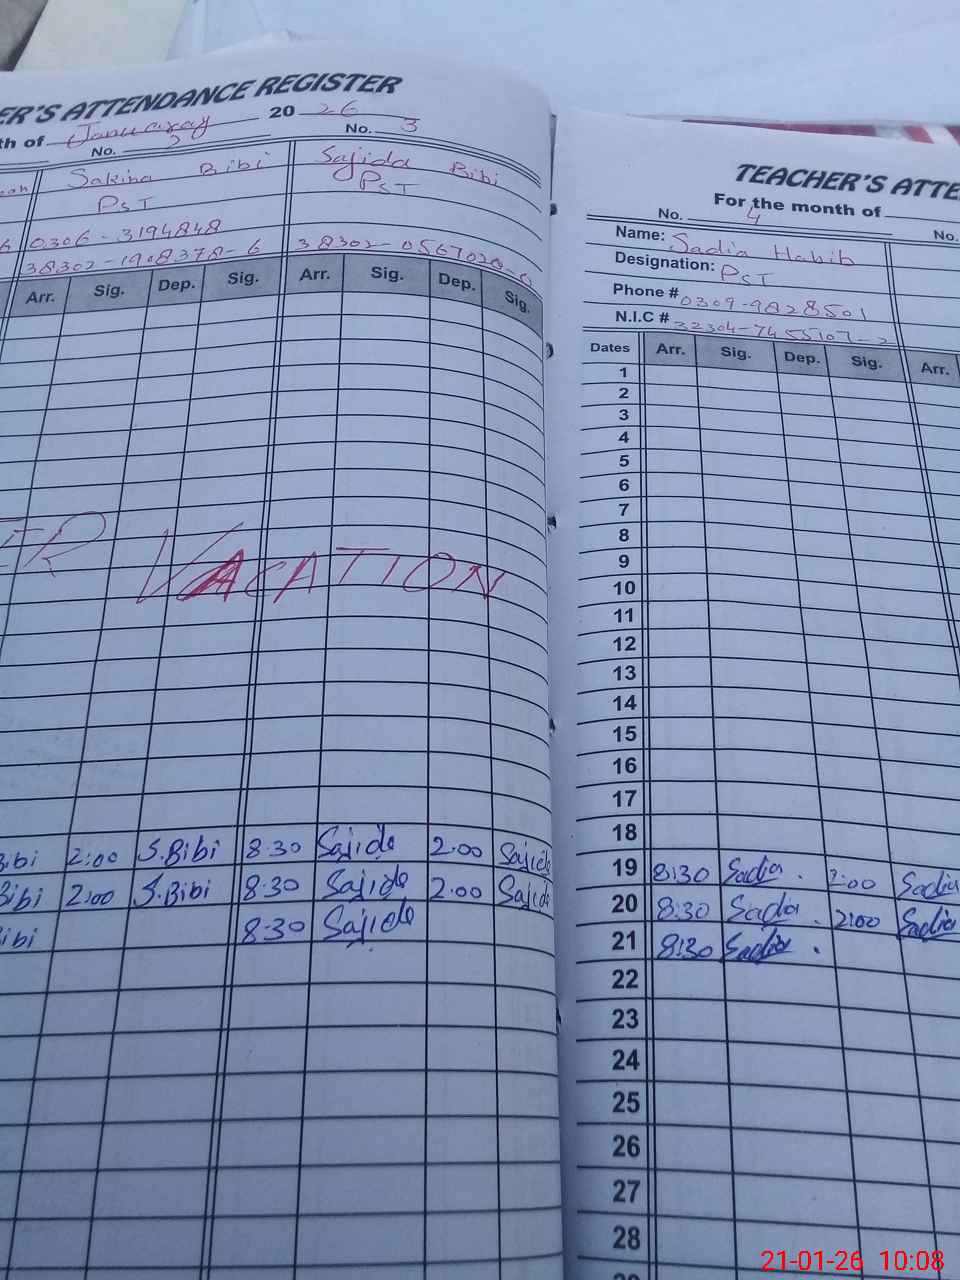 ER'S ATTENDANCE REGISTER
th of January 2026
No. 2 No. 3
Sakina Bibi Sajida Bibi
PST PST
0306-3194848
38302-1908378-6 38302-0567020-
Arr. Sig. Dep. Sig. Arr. Sig. Dep. Sig.
ER VACATION
Bibi 2:00 S.Bibi 8:30 Sajida 2:00 Sajida
Bibi 2:00 S.Bibi 8:30 Sajida 2:00 Sajida
ibi 8:30 Sajida
TEACHER'S ATTE
For the month of
No. 4 No.
Name: Sadia Habib
Designation: PST
Phone # 0309-9828501
N.I.C # 32304-7455107-2
Dates Arr. Sig. Dep. Sig. Arr.
1
2
3
4
5
6
7
8
9
10
11
12
13
14
15
16
17
18
19 8:30 Sadia. 2:00 Sadia
20 8:30 Sadia. 2:00 Sadia
21 8:30 Sadia.
22
23
24
25
26
27
28
21-01-26 10:08